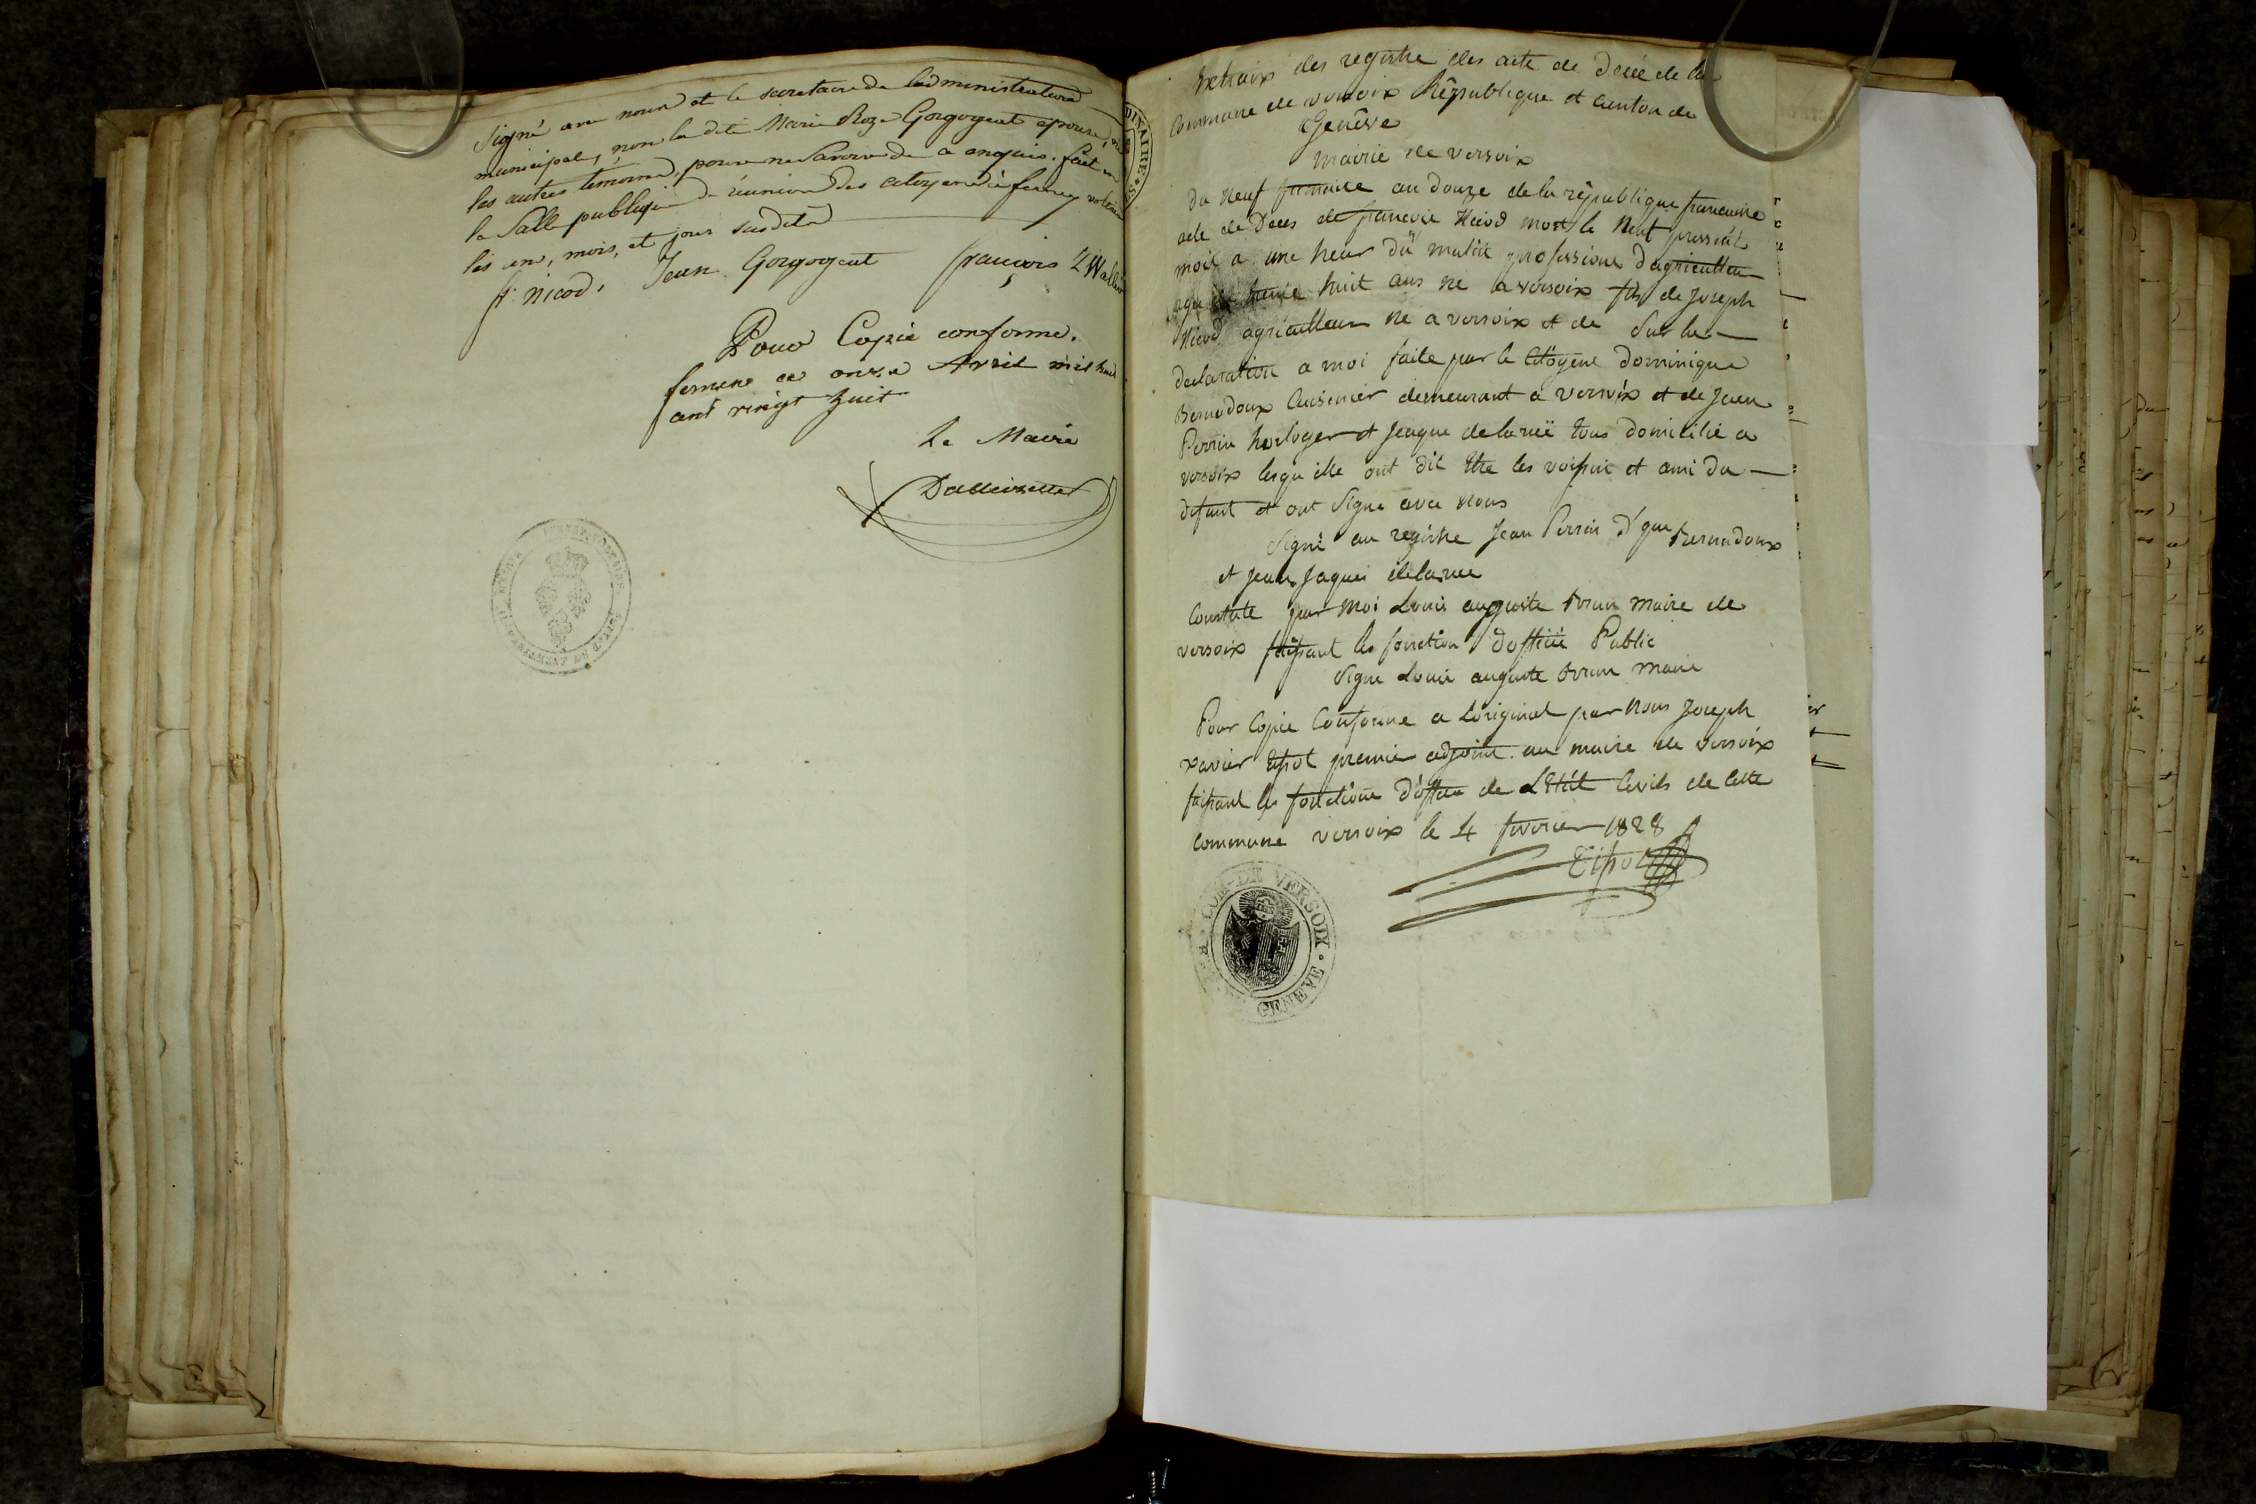 Signé avec nous et le secretaire de Ladministration
municipale, non la dite Marie Roze Gorgogeat epouse, ni
les autres temoins, pour ne Savoir de ce enquis. fait en
la Salle publique de réunion des citoyens à ferney voltaire
les an, mois, et jour susdits
f. nicod. Jean Gorgogeat françois
Pour Copie conforme.
ferney ce onze Avril mil huit
cent vingt huit
Le Maire
Extraix des registre des acte de décé de la
Commune de versoix République et Canton de
Genêve
Mairie de versoix
Du neuf frimaire an douze de la république francaise
acte de Décès de francois Nicod mort le Neuf present
mois a une heur du matin profession d'agriculteur
age de huit ans né a versoix fils de Joseph
Nicod agriculteur né a versoix et de Sur la
declaration a moi faite par le Citoyene dominique
Bernadoux Cuisinier demeurant a versoix et de Jean
Perrin horloger et Jeaque delarue tous domicilié a
versoix lesquelle ont dit Etre les voisins et ami du
defunt et ont Signe avec nous
Signé au registre Jean Perrin D'que Bernadoux
et Jean Jaques delarue
Constaté par Moi Louis auguste brun maire de
versoix faisant les fonction d'officié Public
Signe Louis auguste brun maire
Pour Copie Conforme a L'original par Nous Joseph
xavier premier adjoint au maire de versoix
faisant les fonctions d'officier de L'Etat Civils de cette
commune versoix le 4 fevrier 1828
COM. DE VERSOIX
GENEVE
DINAIRE